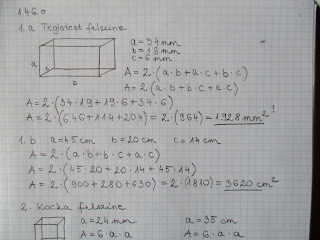 146.o
1. a Téglatest felszíne
a = 34 mm
b = 19 mm
c = 6 mm
A = 2·(a·b+a·c+b·c)
a
c
b
A = 2·(a·b+b·c+a·c)
A = 2·(34·19+19·6+34·6)
A = 2·(646+114+204) = 2·(964) = 1928 mm² !
1. b a=45 cm b=20 cm c=14 cm
A = 2·(a·b+b·c+a·c)
A = 2·(45·20+20·14+45·14)
A = 2·(900+280+630) = 2·(1810) = 3620 cm²
2. Kocka felszíne
a = 24 mm a = 35 cm
A = 6·a·a A = 6·a·a